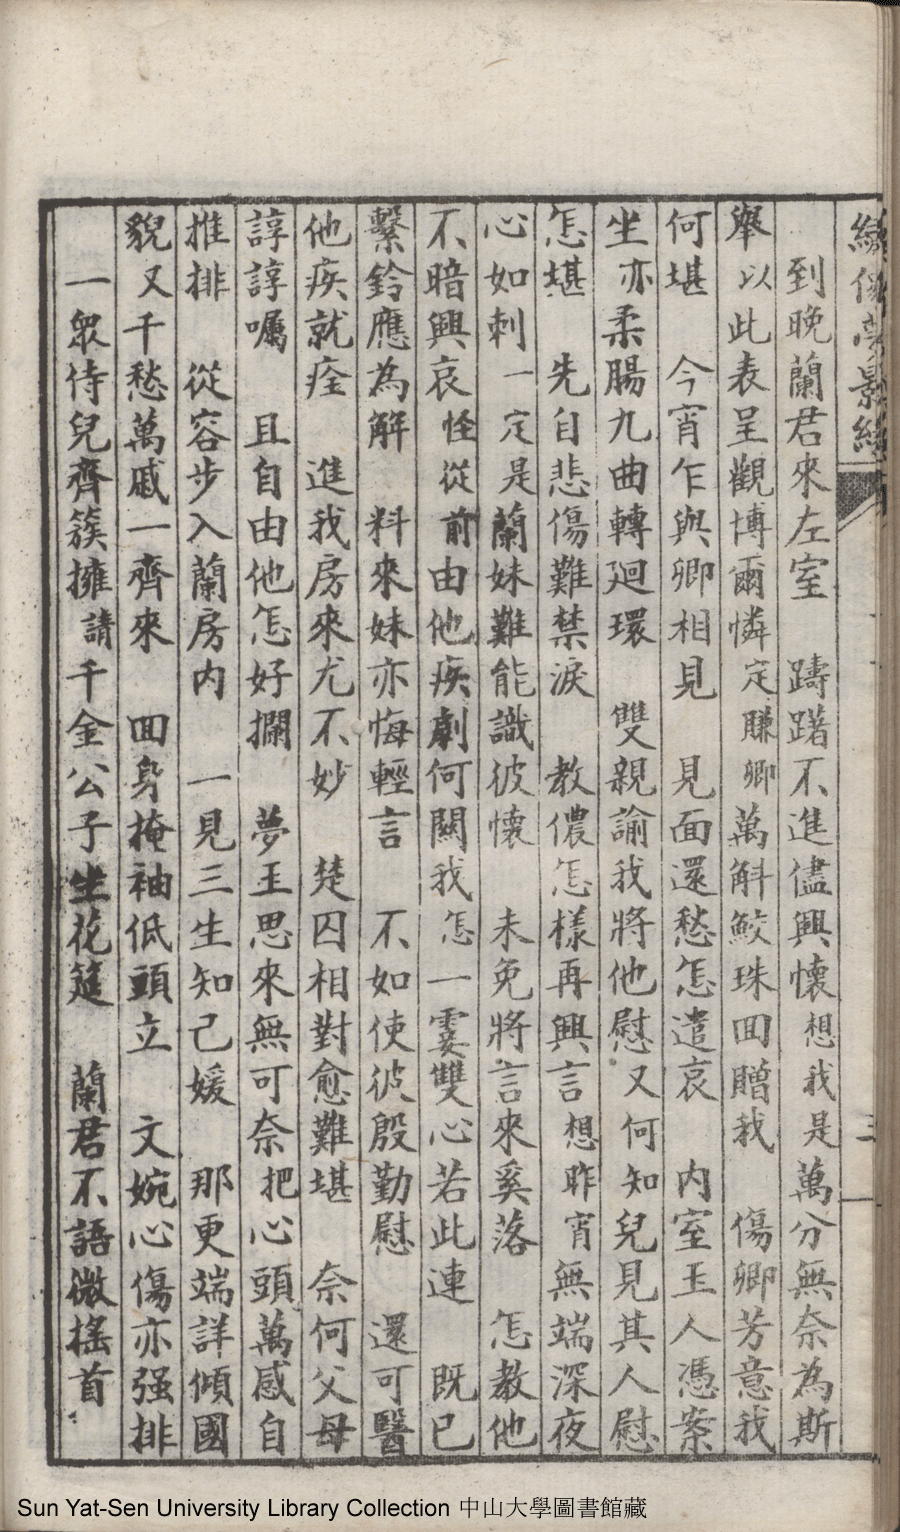 到晚蘭君來左室 躊躇不進儘興懷想我是萬分無奈為斯
舉以此表呈觀博爾憐定賺卿萬斛鮫珠回贈我 傷卿芳意我
何堪 今宵乍與卿相見 見面還愁怎遣哀 內室玉人憑案
坐亦柔腸九曲轉廻環 雙親諭我將他慰又何知兒見其人慰
怎堪 先自悲傷難禁淚 教儂怎樣再興言想昨宵無端深夜
心如刺一定是蘭妹難能識彼懷 未免將言來奚落 怎教他
不暗興哀怪從前由他疾劇何關我怎一霎雙心若此連 既已
繫鈴應為解 料來妹亦悔輕言 不如使彼殷勤慰 還可醫
他疾就痊 進我房來尤不妙 楚囚相對愈難堪 奈何父母
諄諄囑 且自由他怎好攔 夢玉思來無可奈把心頭萬感自
推排 從容步入蘭房內 一見三生知己媛 那更端詳傾國
貌又千愁萬戚一齊來 回身掩袖低頭立 文婉心傷亦强排
一眾侍兒齊簇擁請千金公子坐花筵 蘭君不語微搖首
三
Sun Yat-Sen University Library Collection 中山大學圖書館藏